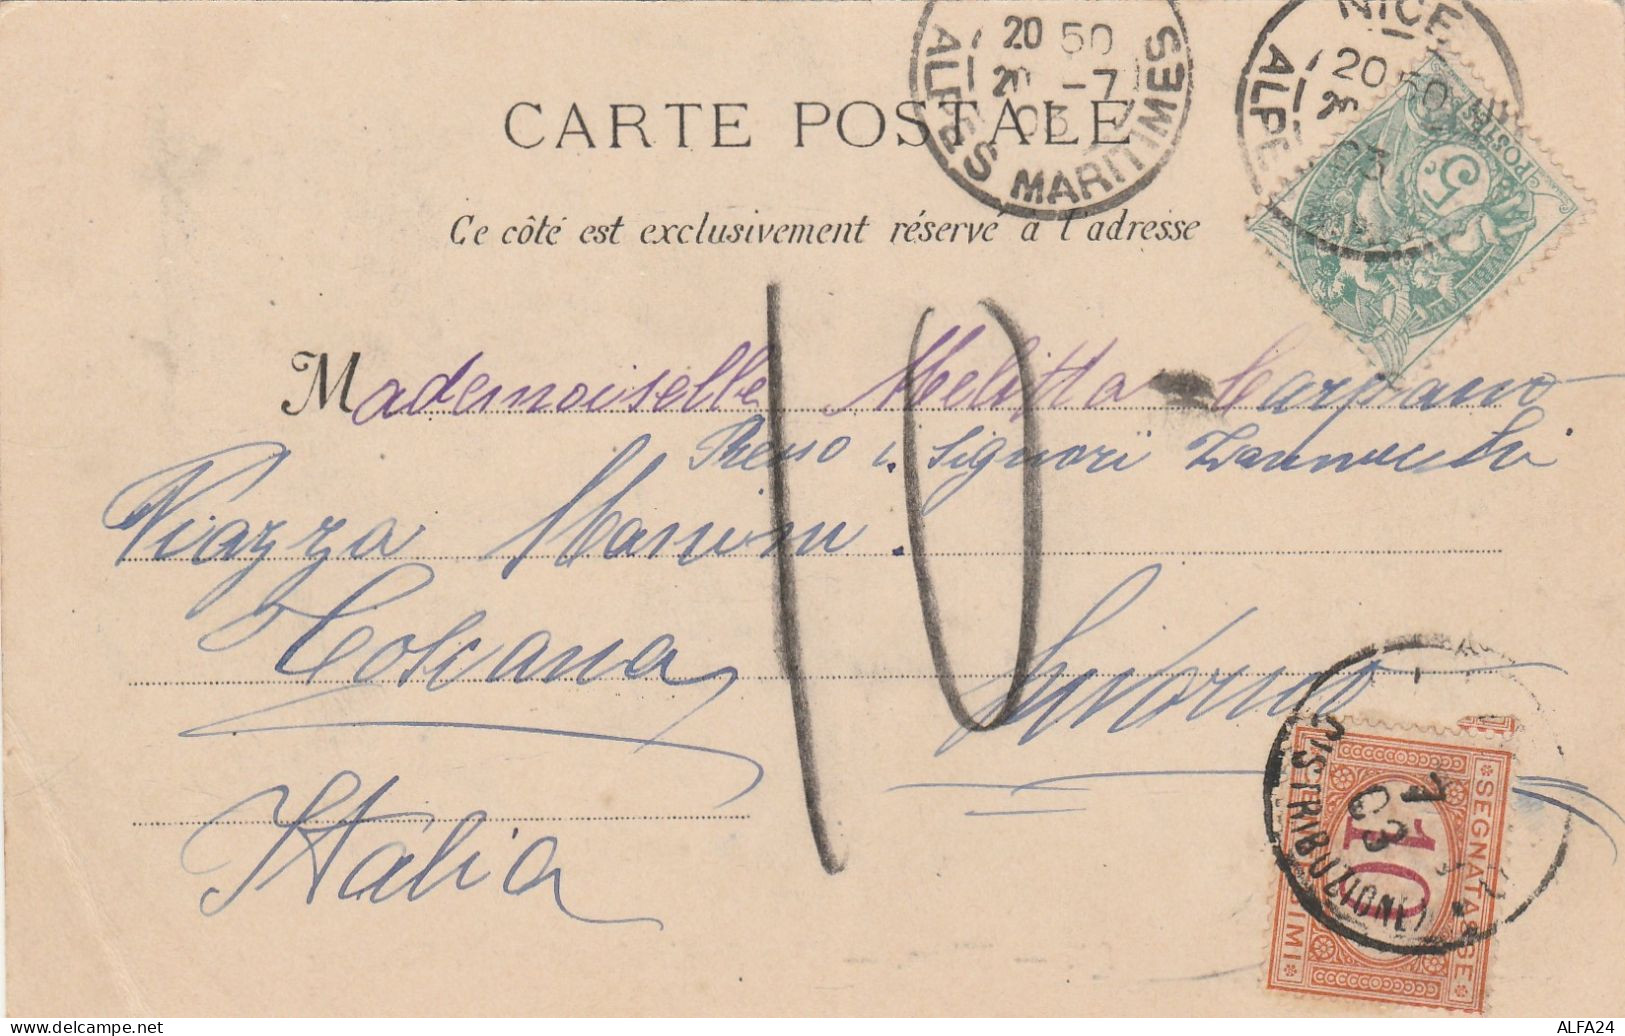 NICE
20 50
20 -7
03
ALPES MARITIMES
20 50
03
ALPE
POSTES
5
CARTE POSTALE
Ce côté est exclusivement réservé à l'adresse
Mademoiselle Melitta Carpano
Presso i Signori
Piazza
10
Toscana Livorno
Italia
SEGNATASSE
10
CENTESIMI
03
DISTRIBUZIONE
ALFA24